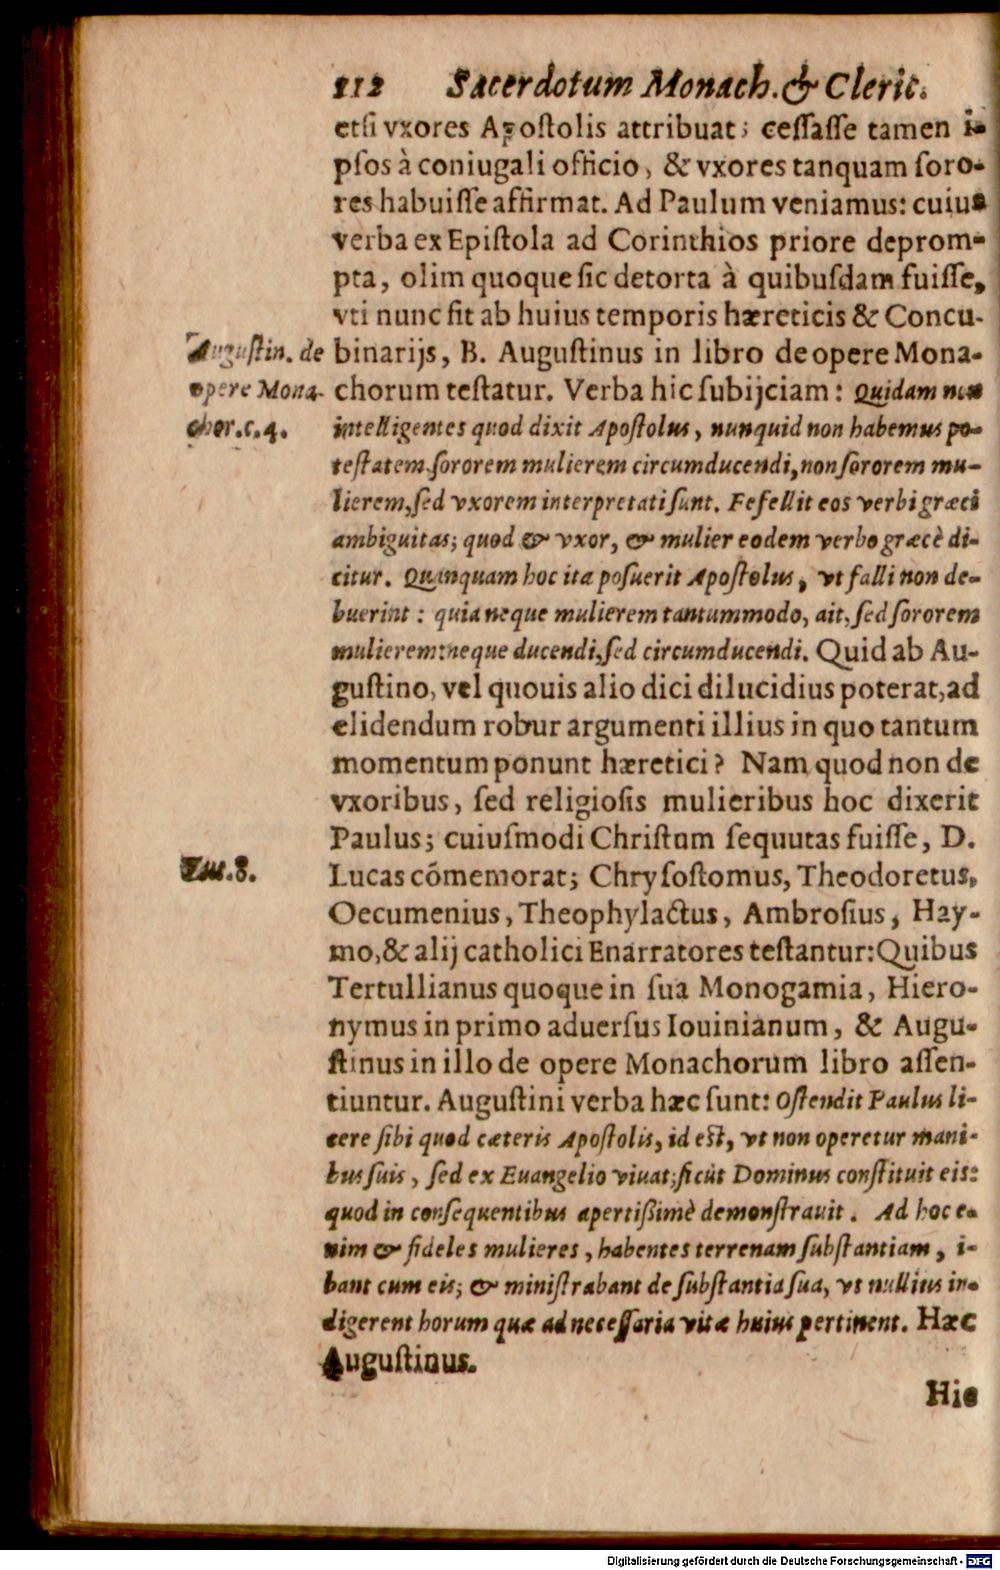 112 Sacerdotum Monach. & Cleric.
etſi vxores Apoſtolis attribuat; ceſſaſſe tamen i-
pſos à coniugali officio, & vxores tanquam ſoro-
res habuiſſe affirmat. Ad Paulum veniamus: cuius
verba ex Epiſtola ad Corinthios priore deprom-
pta, olim quoque ſic detorta à quibuſdam fuiſſe,
vti nunc fit ab huius temporis hæreticis & Concu-
Auguſtin. de
opere Mona-
chor. c. 4.
binarijs, B. Auguſtinus in libro de opere Mona-
chorum teſtatur. Verba hic ſubijciam: Quidam non
intelligentes quod dixit Apoſtolus, nunquid non habemus po-
teſtatem ſororem mulierem circumducendi, non ſororem mu-
lierem, ſed vxorem interpretati ſunt. Fefellit eos verbi græci
ambiguitas; quod & vxor, & mulier eodem verbo græcè di-
citur. Quanquam hoc ita poſuerit Apoſtolus, vt falli non de-
buerint: quia neque mulierem tantummodo, ait, ſed ſororem
mulierem: neque ducendi, ſed circumducendi. Quid ab Au-
guſtino, vel quouis alio dici dilucidius poterat, ad
elidendum robur argumenti illius in quo tantum
momentum ponunt hæretici? Nam quod non de
vxoribus, ſed religioſis mulieribus hoc dixerit
Paulus; cuiuſmodi Chriſtum ſequutas fuiſſe, D.
Luc. 8.
Lucas cõmemorat; Chryſoſtomus, Theodoretus,
Oecumenius, Theophylactus, Ambroſius, Hay-
mo, & alij catholici Enarratores teſtantur: Quibus
Tertullianus quoque in ſua Monogamia, Hiero-
nymus in primo aduerſus Iouinianum, & Augu-
ſtinus in illo de opere Monachorum libro aſſen-
tiuntur. Auguſtini verba hæc ſunt: Oſtendit Paulus li-
cere ſibi quod cæteris Apoſtolis, id eſt, vt non operetur mani-
bus ſuis, ſed ex Euangelio viuat; ſicùt Dominus conſtituit eis:
quod in conſequentibus apertißimè demonſtrauit. Ad hoc e-
nim & fideles mulieres, habentes terrenam ſubſtantiam, i-
bant cum eis; & miniſtrabant de ſubſtantia ſua, vt nullius in-
digerent horum quæ ad neceſſaria vitæ huius pertinent. Hæc
Auguſtinus.
Hic
Digitalisierung gefördert durch die Deutsche Forschungsgemeinschaft - DFG